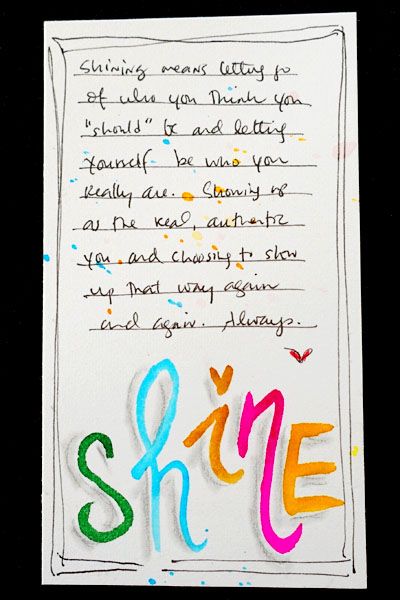 Shining means letting go
of who you think you
"should" be and letting
yourself be who you
really are. Showing up
as the real, authentic
you and choosing to show
up that way again
and again. Always.
shinE